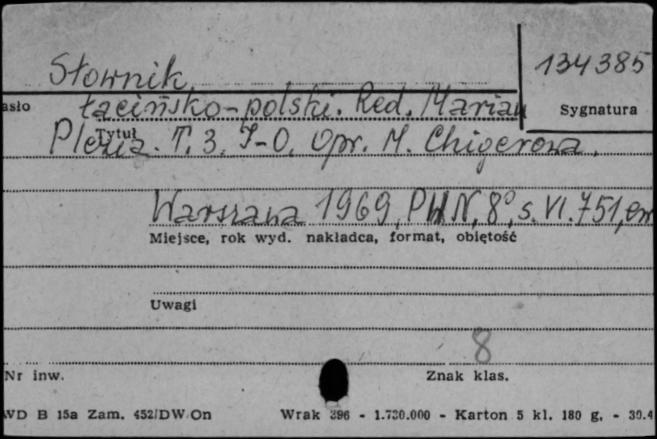 Słownik
134385
łacińsko-polski. Red. Marian
asło
Sygnatura
Tytuł
Plezia. T. 3. I-O. Opr. M. Chigerowa.
Warszawa 1969, PWN, 8°, s. VI. 751, err
Miejsce, rok wyd. nakładca, format, objętość
Uwagi
8
Nr inw.
Znak klas.
WD B 15a Zam. 452/DW/On Wrak 396 - 1.730.000 - Karton 5 kl. 180 g. - 30.4